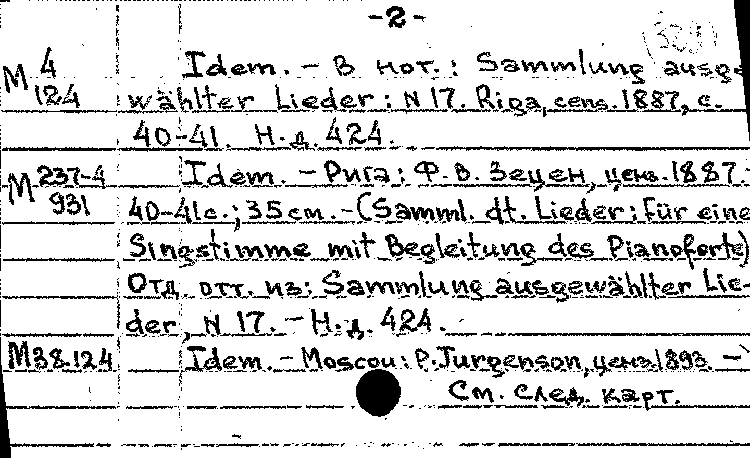 -2-
M 4/124 Idem. – В нот.: Sammlung ausge-
wählter Lieder: N 17. Riga, cens. 1887, с.
40-41. Н.д. 424.
M 237-4/931 Idem. – Рига: Ф.В. Зецен, ценз. 1887.-
40-41с.; 35см. – (Samml. dt. Lieder: für eine
Singstimme mit Begleitung des Pianoforte)
Отд. отт. из: Sammlung ausgewählter Lie-
der, N 17. – Н.д. 424.
M38-124 Idem. – Moscou: P. Jurgenson, ценз. 1893. –
См. след. карт.